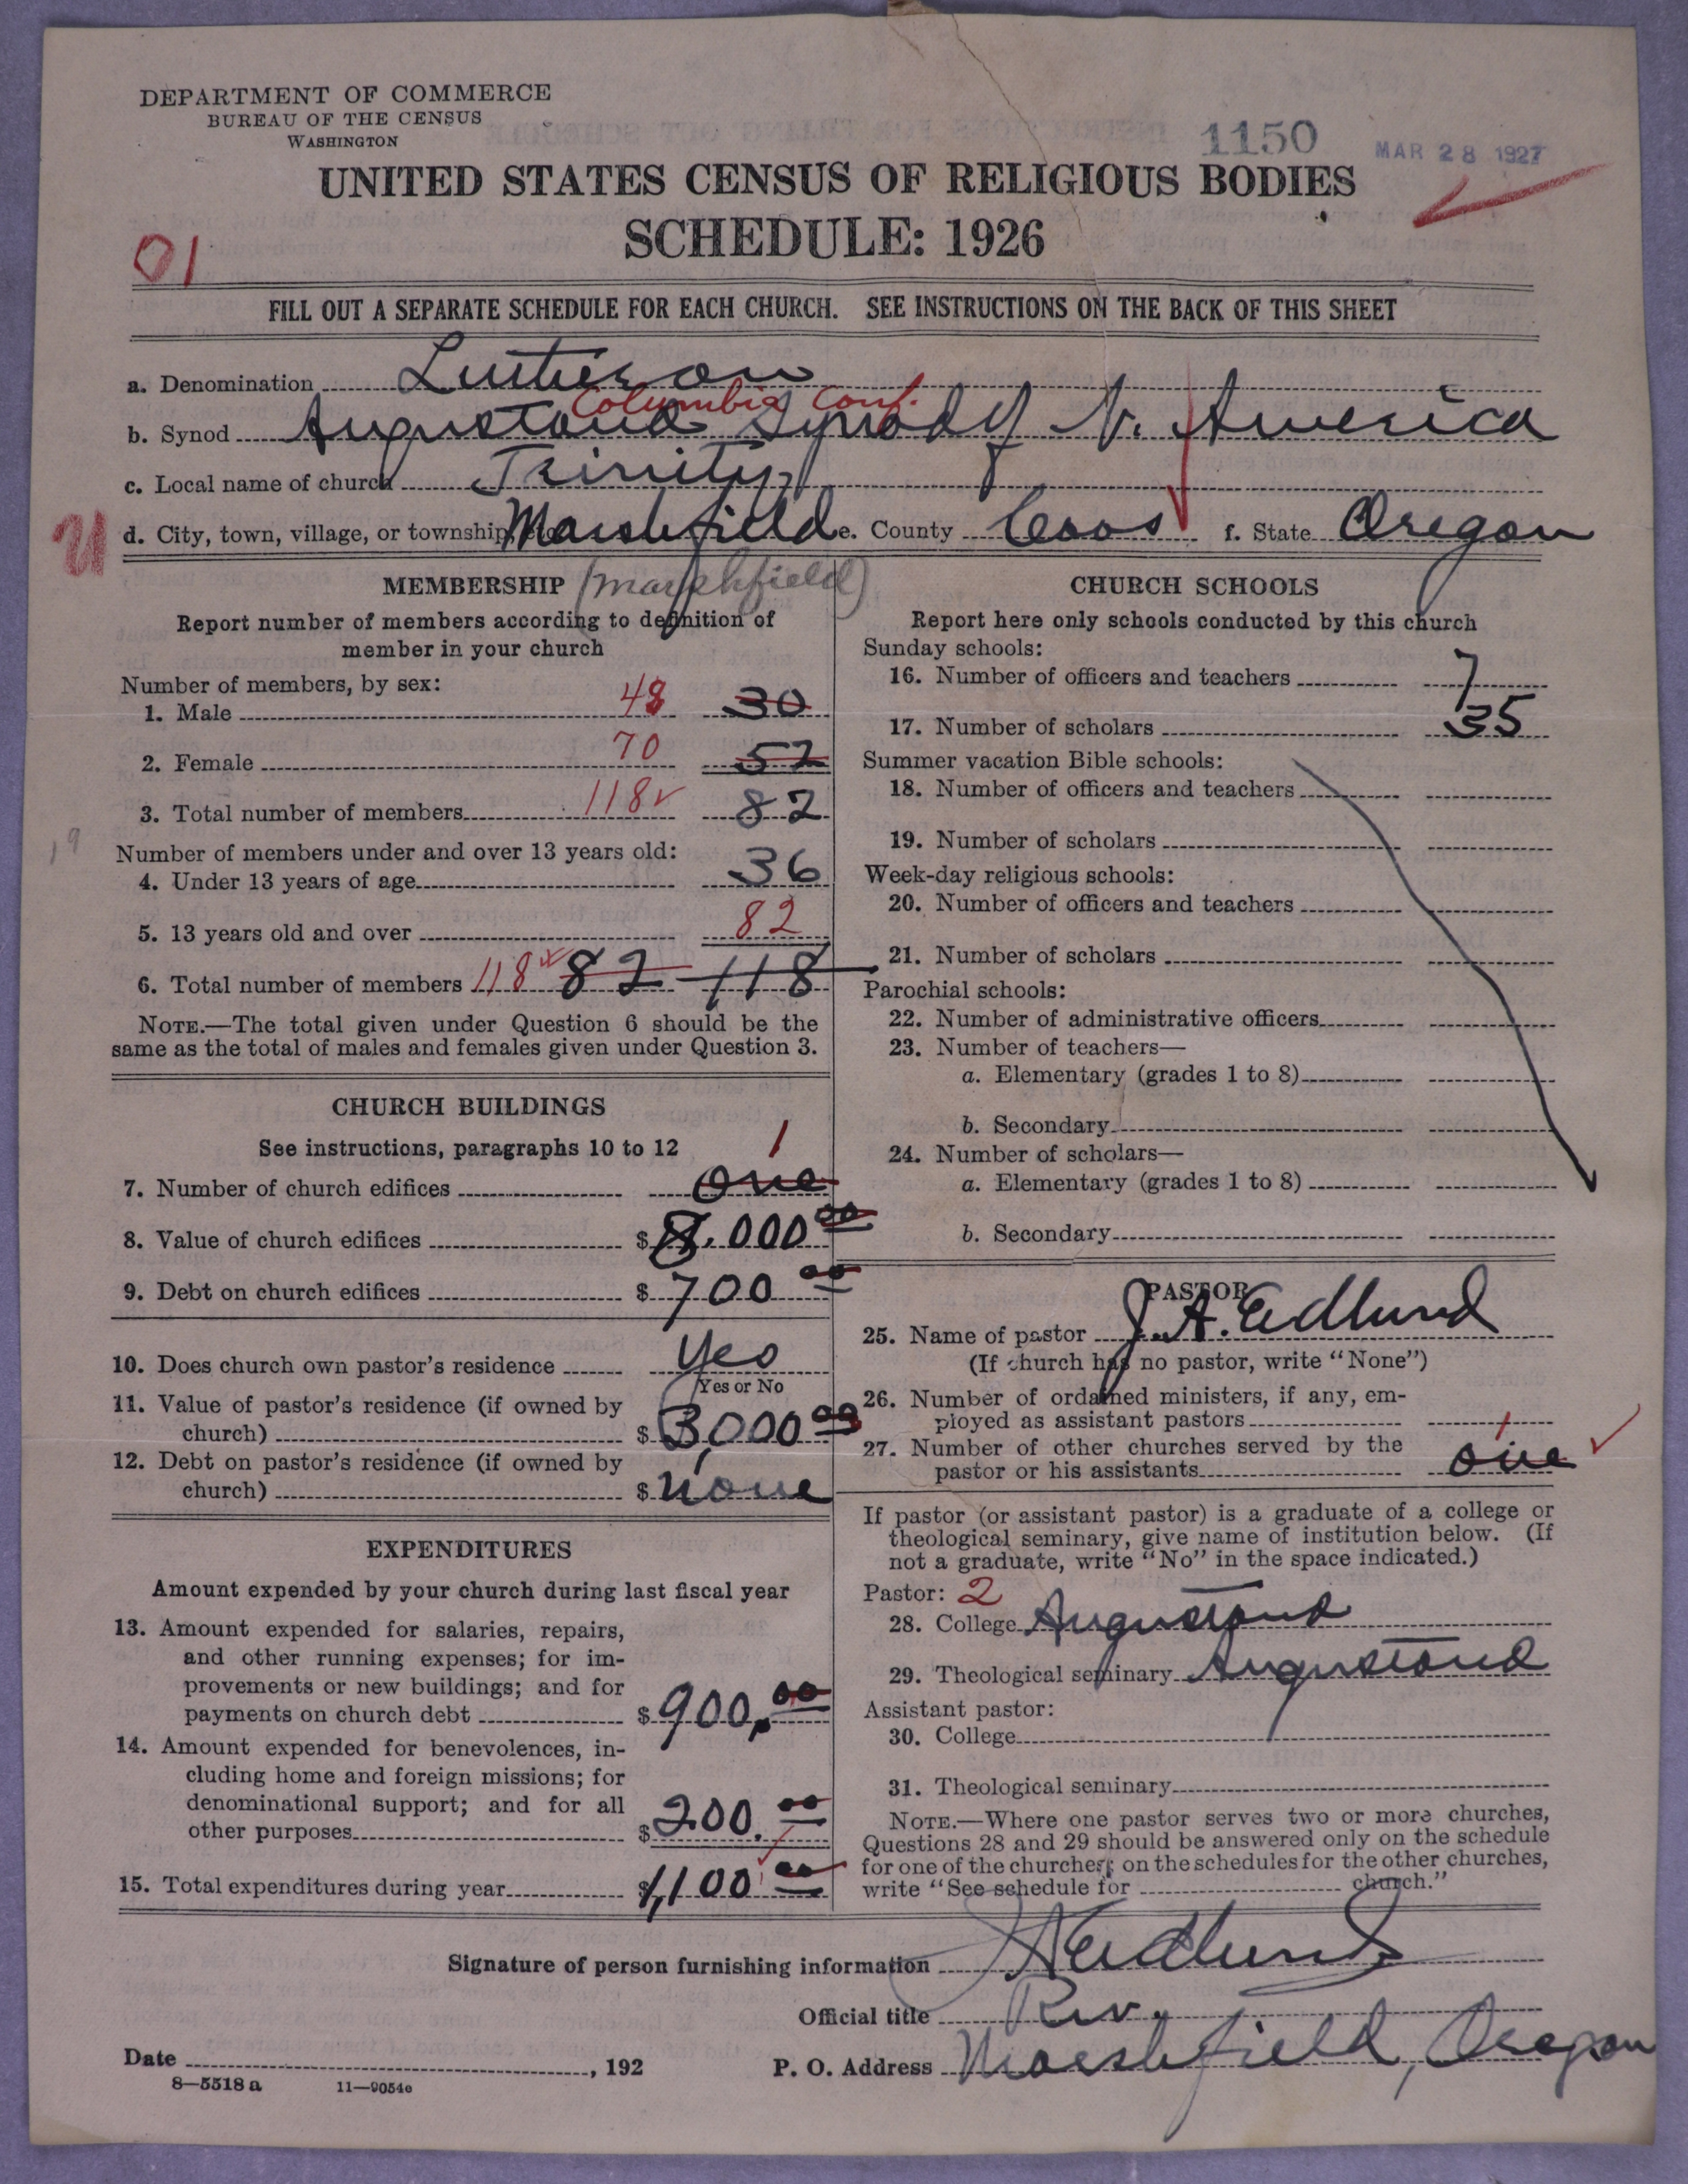 DEPARTMENT OF COMMERCE
BUREAU OF THE CENSUS
WASHINGTON
1150
MAR 28 1927
UNITED STATES CENSUS OF RELIGIOUS BODIES
SCHEDULE: 1926
01
FILL OUT A SEPARATE SCHEDULE FOR EACH CHURCH. SEE INSTRUCTIONS ON THE BACK OF THIS SHEET
a. Denomination Lutheran
Columbia Conf.
b. Synod Augustana Synod of N. America
c. Local name of church Trinity
d. City, town, village, or township, etc. Marshfield e. County Coos f. State Oregon
MEMBERSHIP (Marshfield)
Report number of members according to definition of
member in your church
Number of members, by sex:
1. Male 48 30
2. Female 70 52
3. Total number of members 118 82
Number of members under and over 13 years old:
4. Under 13 years of age 36
5. 13 years old and over 82
6. Total number of members 118 82 118
NOTE.—The total given under Question 6 should be the
same as the total of males and females given under Question 3.
CHURCH BUILDINGS
See instructions, paragraphs 10 to 12
1
7. Number of church edifices one
8. Value of church edifices $8,000 00
9. Debt on church edifices $700 00
10. Does church own pastor's residence Yes
Yes or No
11. Value of pastor's residence (if owned by
church) $3,000 00
12. Debt on pastor's residence (if owned by
church) $none
EXPENDITURES
Amount expended by your church during last fiscal year
13. Amount expended for salaries, repairs,
and other running expenses; for im-
provements or new buildings; and for
payments on church debt $900.00
14. Amount expended for benevolences, in-
cluding home and foreign missions; for
denominational support; and for all
other purposes $200.00
15. Total expenditures during year $1,100 00
CHURCH SCHOOLS
Report here only schools conducted by this church
Sunday schools:
16. Number of officers and teachers 7
17. Number of scholars 35
Summer vacation Bible schools:
18. Number of officers and teachers
19. Number of scholars
Week-day religious schools:
20. Number of officers and teachers
21. Number of scholars
Parochial schools:
22. Number of administrative officers
23. Number of teachers—
a. Elementary (grades 1 to 8)
b. Secondary
24. Number of scholars—
a. Elementary (grades 1 to 8)
b. Secondary
PASTOR
25. Name of pastor J. A. Edlund
(If church has no pastor, write "None")
26. Number of ordained ministers, if any, em-
ployed as assistant pastors
27. Number of other churches served by the
1
pastor or his assistants one
If pastor (or assistant pastor) is a graduate of a college or
theological seminary, give name of institution below. (If
not a graduate, write "No" in the space indicated.)
Pastor: 2
28. College Augustana
29. Theological seminary Augustana
Assistant pastor:
30. College
31. Theological seminary
NOTE.—Where one pastor serves two or more churches,
Questions 28 and 29 should be answered only on the schedule
for one of the churches; on the schedules for the other churches,
write "See schedule for church."
Signature of person furnishing information J A Edlund
Official title Rev.
Date , 192 P. O. Address Marshfield, Oregon
8—5518 a 11—9054e